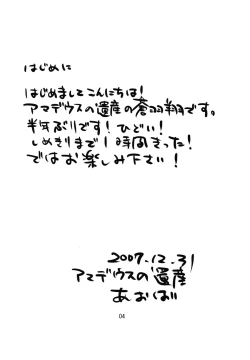 はじめに
はじめましてこんにちは!
アマデウスの遺産の蒼羽翔です。
半年ぶりです!ひどい!
しめきりまで1時間きった!
ではお楽しみ下さい!
2007.12.31
アマデウスの遺産
あおば
04